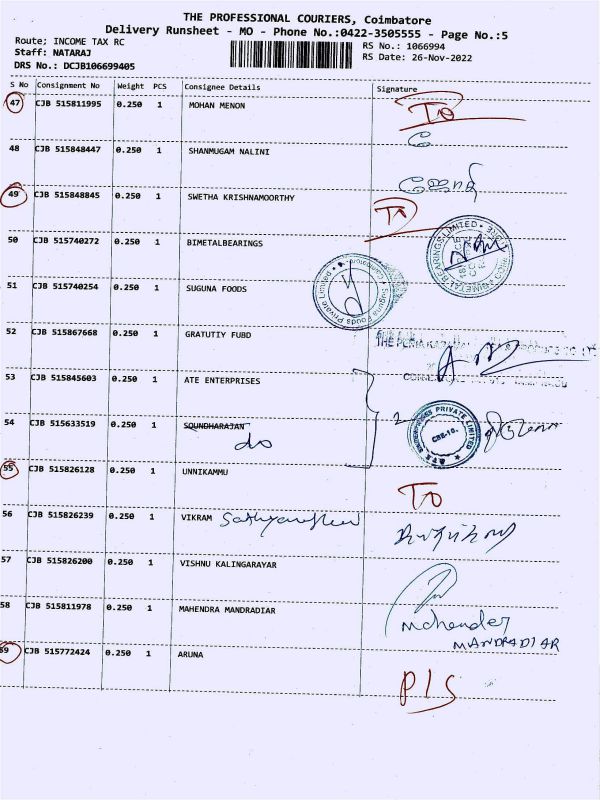 THE PROFESSIONAL COURIERS, Coimbatore
Delivery Runsheet - MO - Phone No.:0422-3505555 - Page No.:5
Route; INCOME TAX RC
RS No.: 1066994
Staff: NATARAJ
RS Date: 26-Nov-2022
DRS No.: DCJB106699405
S No Consignment No Weight PCS Consignee Details Signature
47 CJB 515811995 0.250 1 MOHAN MENON
48 CJB 515848447 0.250 1 SHANMUGAM NALINI
49 CJB 515848845 0.250 1 SWETHA KRISHNAMOORTHY
50 CJB 515740272 0.250 1 BIMETALBEARINGS
BIMETAL BEARINGS LIMITED
51 CJB 515740254 0.250 1 SUGUNA FOODS
Suguna Foods Private Limited
52 CJB 515867668 1.000 1 GRATUTIY FUBD
53 CJB 515845603 0.250 1 ATE ENTERPRISES
54 CJB 515633519 0.250 1 SOUNDHARAJAN
do
2
ATE ENTERPRISES PRIVATE LIMITED
CBE-18.
55 CJB 515826128 0.250 1 UNNIKAMMU
56 CJB 515826239 0.250 1 VIKRAM
57 CJB 515826200 0.250 1 VISHNU KALINGARAYAR
58 CJB 515811978 0.250 1 MAHENDRA MANDRADIAR
Mahender
MANDRADIAR
59 CJB 515772424 0.250 1 ARUNA
P/S